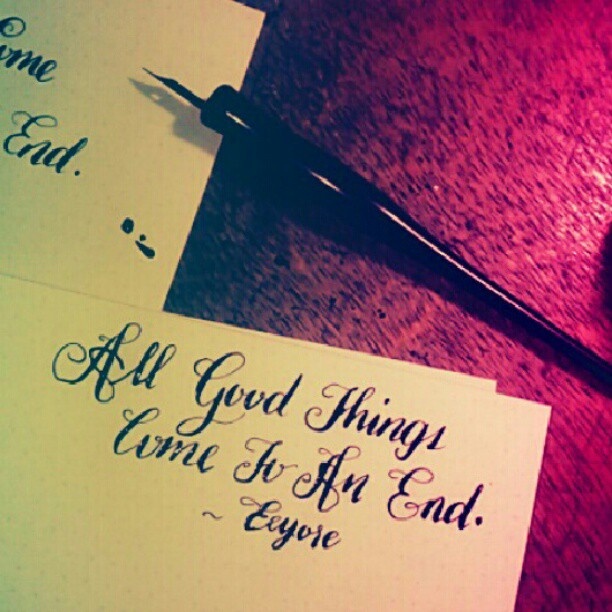 Come
End.
All Good Things
Come To An End.
~ Eeyore